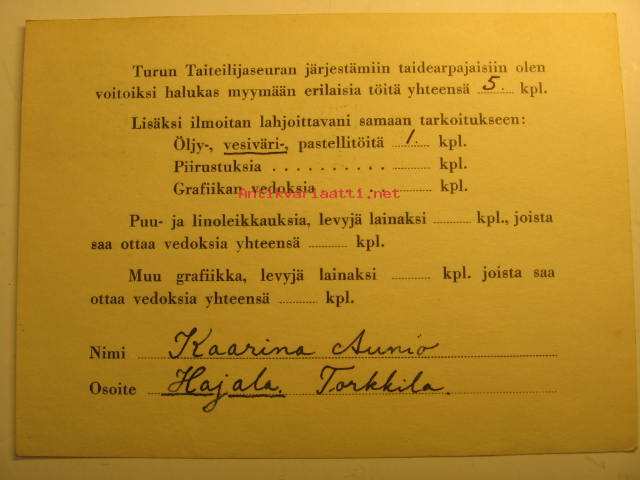 Turun Taiteilijaseuran järjestämiin taidearpajaisiin olen
voitoiksi halukas myymään erilaisia töitä yhteensä 5 kpl.
Lisäksi ilmoitan lahjoittavani samaan tarkoitukseen:
Öljy-, vesiväri-, pastellitöitä 1. kpl.
Piirustuksia . . . . . . . . . . kpl.
Grafiikan vedoksia . . . kpl.
Antikvariaatti.net
Puu- ja linoleikkauksia, levyjä lainaksi kpl., joista
saa ottaa vedoksia yhteensä kpl.
Muu grafiikka, levyjä lainaksi kpl. joista saa
ottaa vedoksia yhteensä kpl.
Nimi Kaarina Aunio
Osoite Hajala. Torkkila.